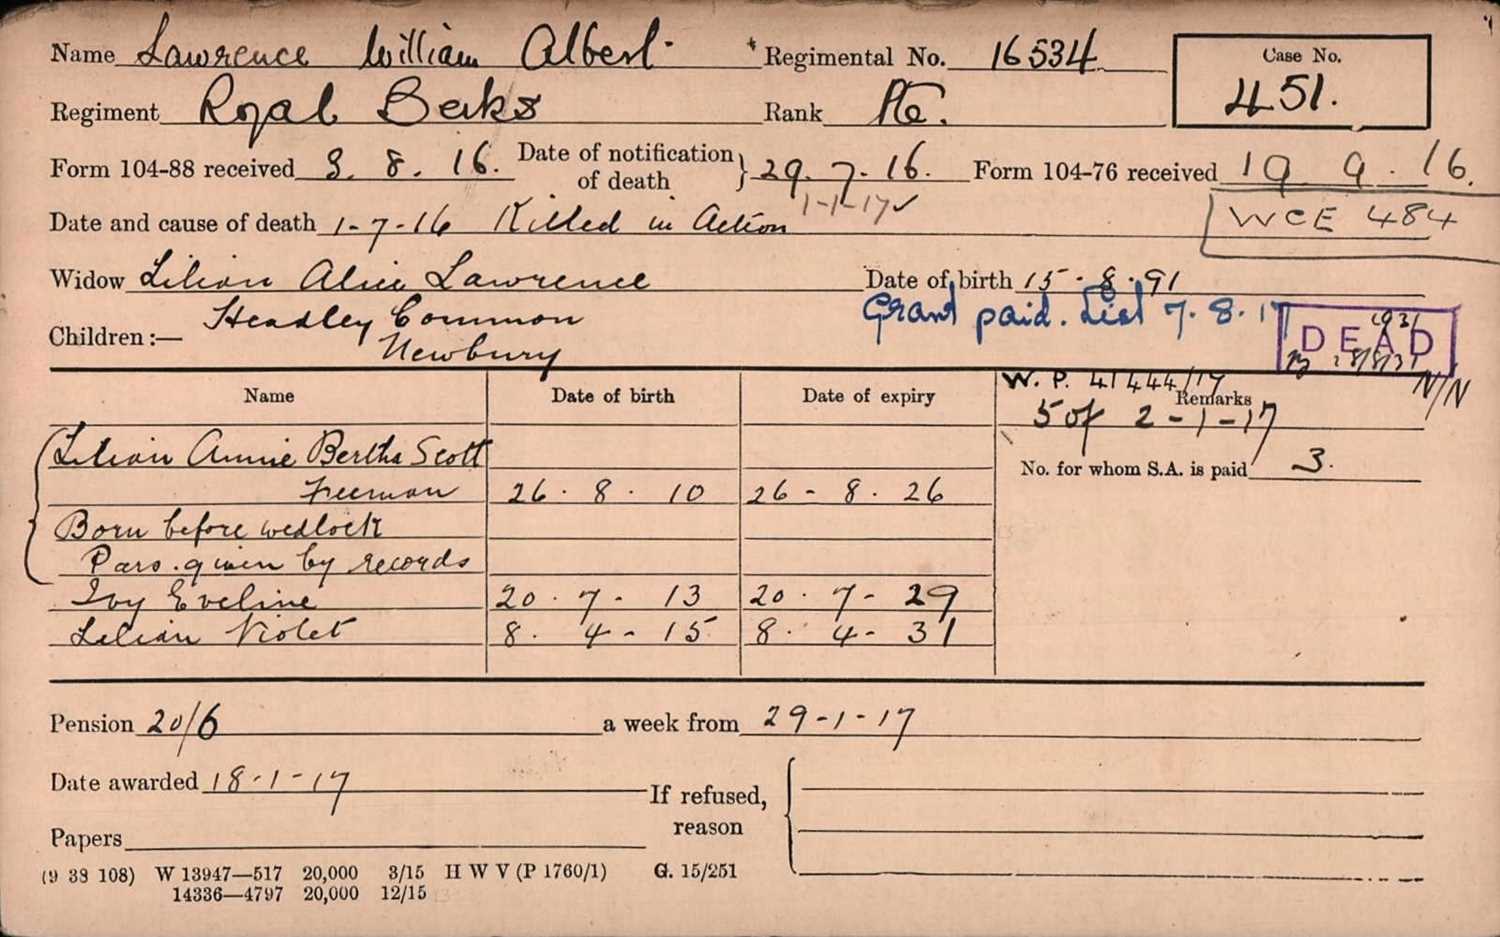 Name Lawrence William Albert Regimental No. 16534 Case No.
451.
Regiment Royal Berks Rank Pte.
Form 104-88 received 3. 8. 16. Date of notification of death } 29. 7. 16. Form 104-76 received 19 9. 16.
1-1-17 ✓
Date and cause of death 1-7-16 Killed in Action WCE 484
Widow Lilian Alice Lawrence Date of birth 15-8-91
Headley Common
Grant paid. List 7. 8. 17
Children :—
Newbury
DEAD
1931
18/8/31
N/N
W. P. 41444/17
Name Date of birth Date of expiry Remarks
5 of 2-1-17
Lilian Annie Bertha Scott
No. for whom S.A. is paid 3.
Freeman 26. 8. 10 26-8. 26
Born before wedlock
Pars. given by records
Ivy Eveline 20. 7- 13 20. 7- 29
Lilian Violet 8. 4- 15 8. 4- 31
Pension 20/6 a week from 29-1-17
Date awarded 18-1-17
If refused, reason
Papers
(9 38 108) W 13947—517 20,000 3/15 H W V (P 1760/1) G. 15/251
14336—4797 20,000 12/15